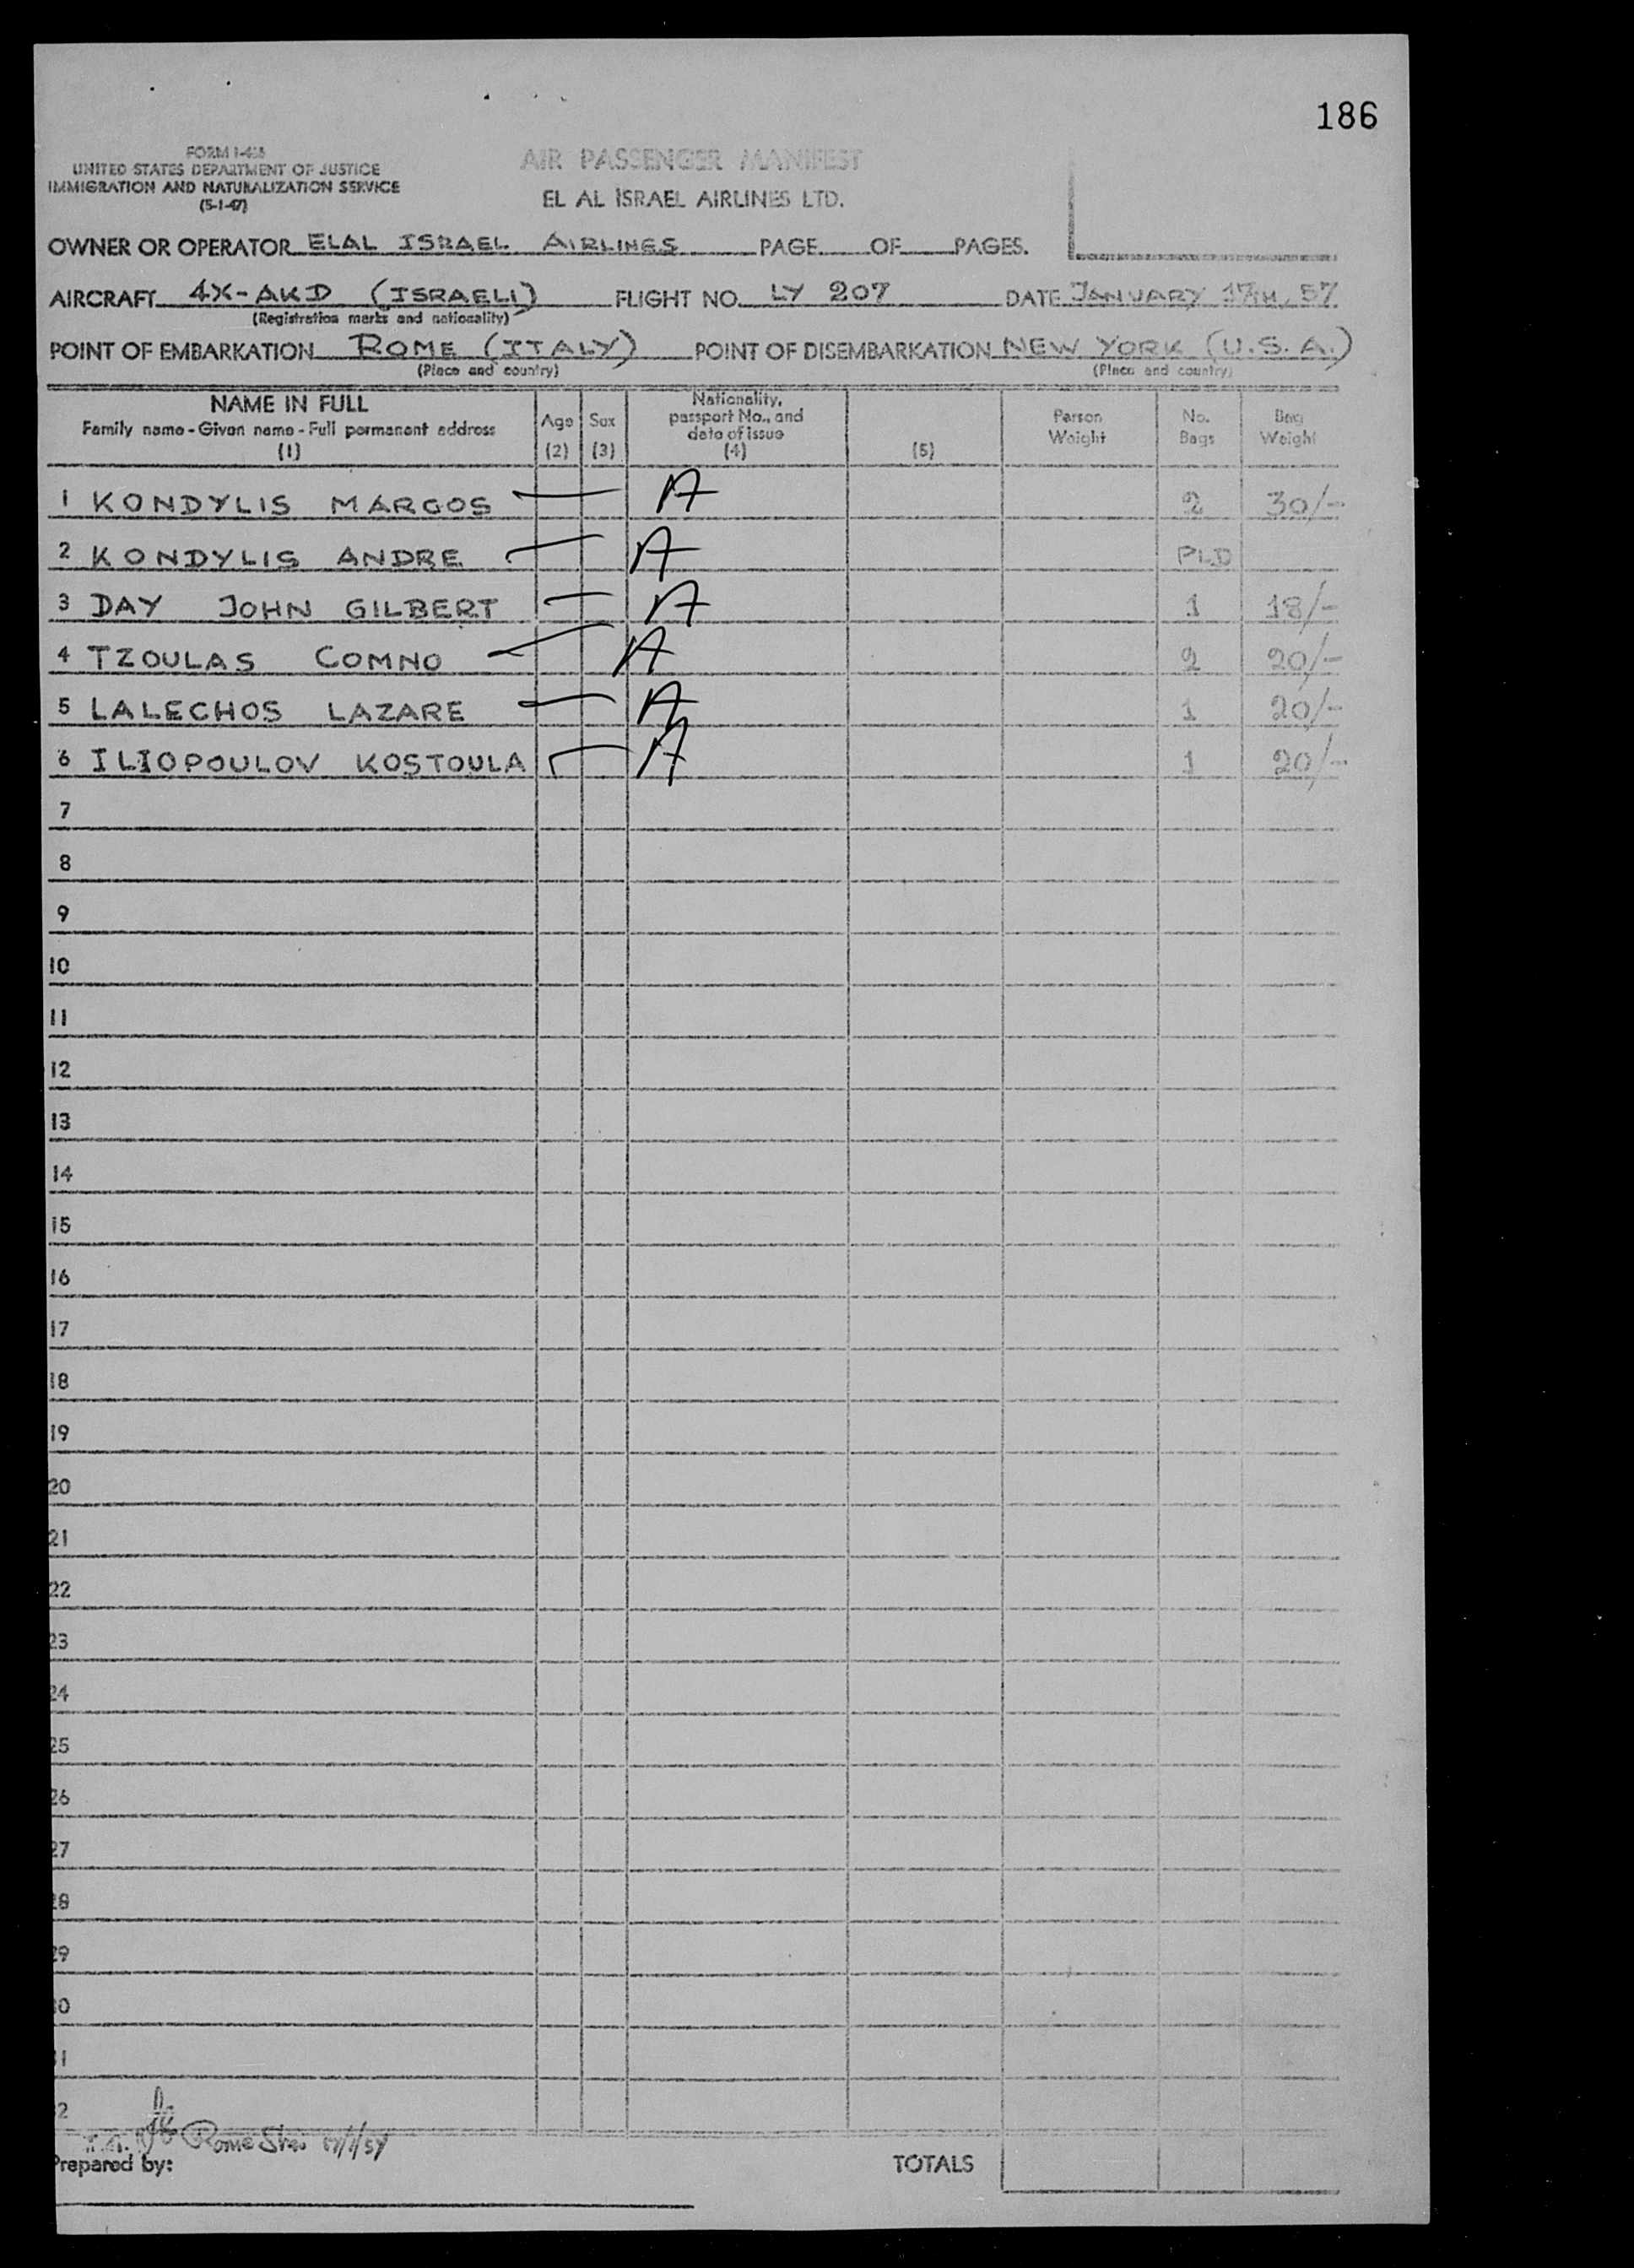 186
FORM I-418
UNITED STATES DEPARTMENT OF JUSTICE
IMMIGRATION AND NATURALIZATION SERVICE
(5-1-47)
AIR PASSENGER MANIFEST
EL AL ISRAEL AIRLINES LTD.
OWNER OR OPERATOR ELAL ISRAEL AIRLINES PAGE OF PAGES.
AIRCRAFT 4X-AKD (ISRAELI) FLIGHT NO. LY 207 DATE JANUARY 17TH, 57
(Registration marks and nationality)
POINT OF EMBARKATION ROME (ITALY) POINT OF DISEMBARKATION NEW YORK (U.S.A.)
(Place and country) (Place and country)
NAME IN FULL
Family name - Given name - Full permanent address
(1)
Age
(2)
Sex
(3)
Nationality,
passport No., and
date of issue
(4)
(5)
Person
Weight
No.
Bags
Bag
Weight
1 KONDYLIS MARGOS A 2 30/-
2 KONDYLIS ANDRE A PLD
3 DAY JOHN GILBERT A 1 18/-
4 TZOULAS COMNO A 2 20/-
5 LALECHOS LAZARE A 1 20/-
6 ILIOPOULOV KOSTOULA A 1 20/-
7
8
9
10
11
12
13
14
15
16
17
18
19
20
21
22
23
24
25
26
27
28
29
30
31
32
Rome
Prepared by:
TOTALS